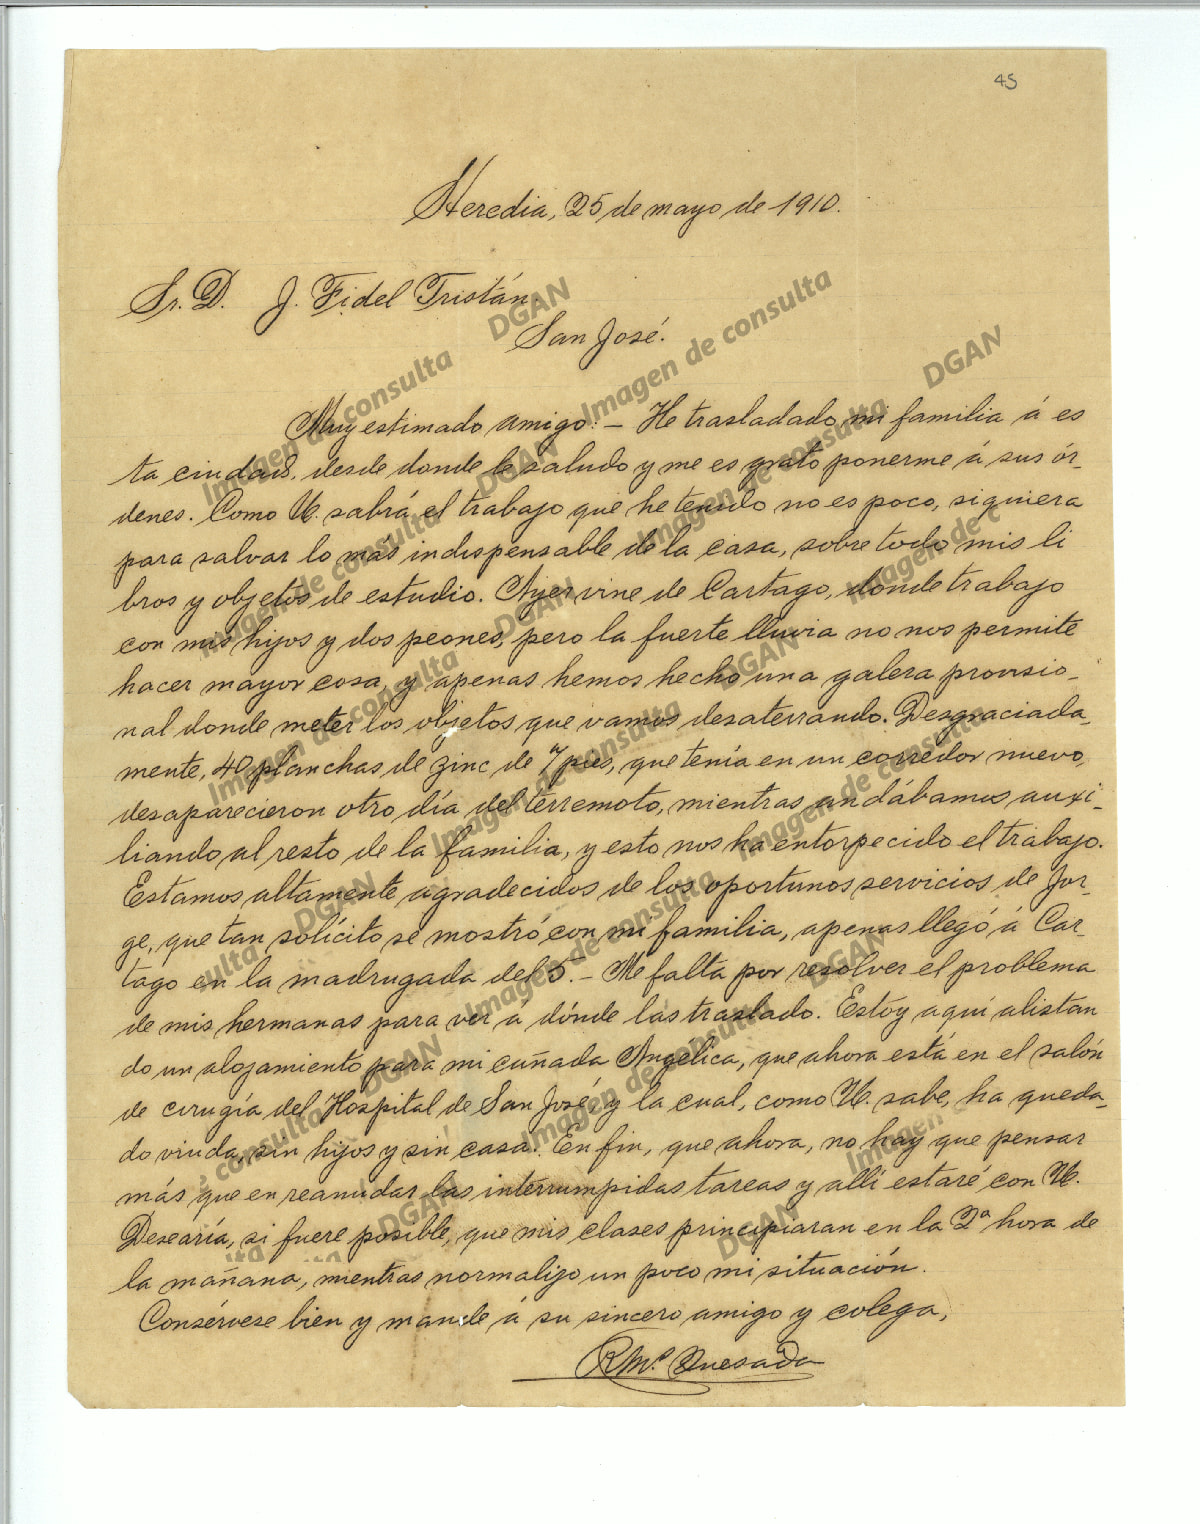 45
Heredia, 25 de mayo de 1910.
Sr. D. J. Fidel Tristán.
San José.
Muy estimado amigo: - He trasladado mi familia á es
ta ciudad, desde donde le saludo y me es grato ponerme á sus ór-
denes. Como U. sabrá el trabajo que he tenido no es poco, siquiera
para salvar lo más indispensable de la casa, sobre todo mis li
bros y objetos de estudio. Ayer vine de Cartago, donde trabajo
con mis hijos y dos peones, pero la fuerte lluvia no nos permite
hacer mayor cosa, y apenas hemos hecho una galera provisio-
nal donde meter los objetos que vamos desaterrando. Desgraciada-
mente, 40 planchas de zinc de 7 pies, que tenía en un corredor nuevo,
desaparecieron otro día del terremoto, mientras andábamos auxi-
liando al resto de la familia, y esto nos ha entorpecido el trabajo.
Estamos altamente agradecidos de los oportunos servicios de Jor-
ge, que tan solícito se mostró con mi familia, apenas llegó á Car-
tago en la madrugada del 5. - Me falta por resolver el problema
de mis hermanas para ver á dónde las traslado. Estoy aquí alistan
do un alojamiento para mi cuñada Angélica, que ahora está en el salón
de cirugía del Hospital de San José, y la cual, como U. sabe, ha queda-
do viuda, sin hijos y sin casa. En fin, que ahora, no hay que pensar
más que en reanudar las interrumpidas tareas y allí estaré con U.
Desearía, si fuere posible, que mis clases principiaran en la 2ª hora de
la mañana, mientras normalizo un poco mi situación.
Consérvese bien y mande á su sincero amigo y colega,
R Mª Quesada
DGAN
Imagen de consulta